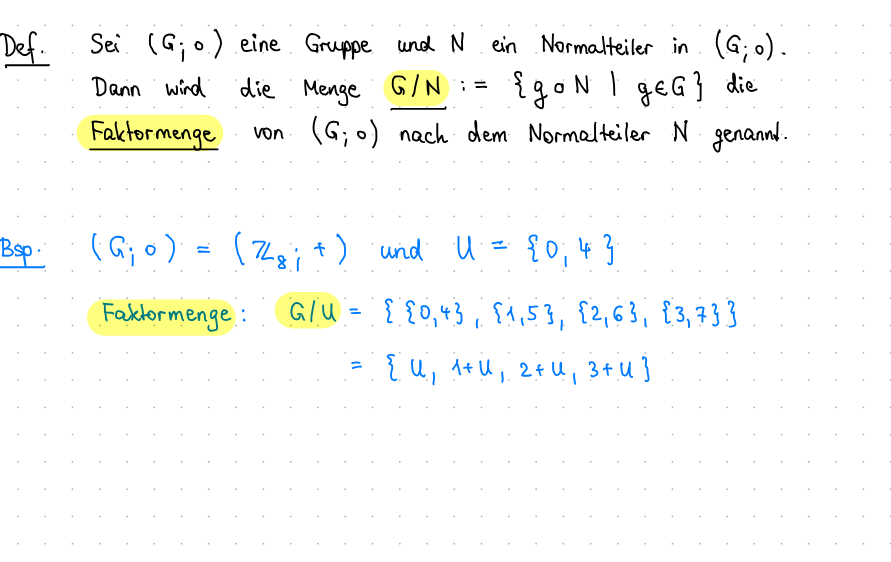 Def. Sei (G; ∘) eine Gruppe und N ein Normalteiler in (G; ∘).
Dann wird die Menge G/N := { g ∘ N | g ∈ G } die
Faktormenge von (G; ∘) nach dem Normalteiler N genannt.
Bsp. (G; ∘) = (ℤ₈; +) und U = {0, 4}
Faktormenge: G/U = { {0,4}, {1,5}, {2,6}, {3,7} }
= { U, 1+U, 2+U, 3+U }